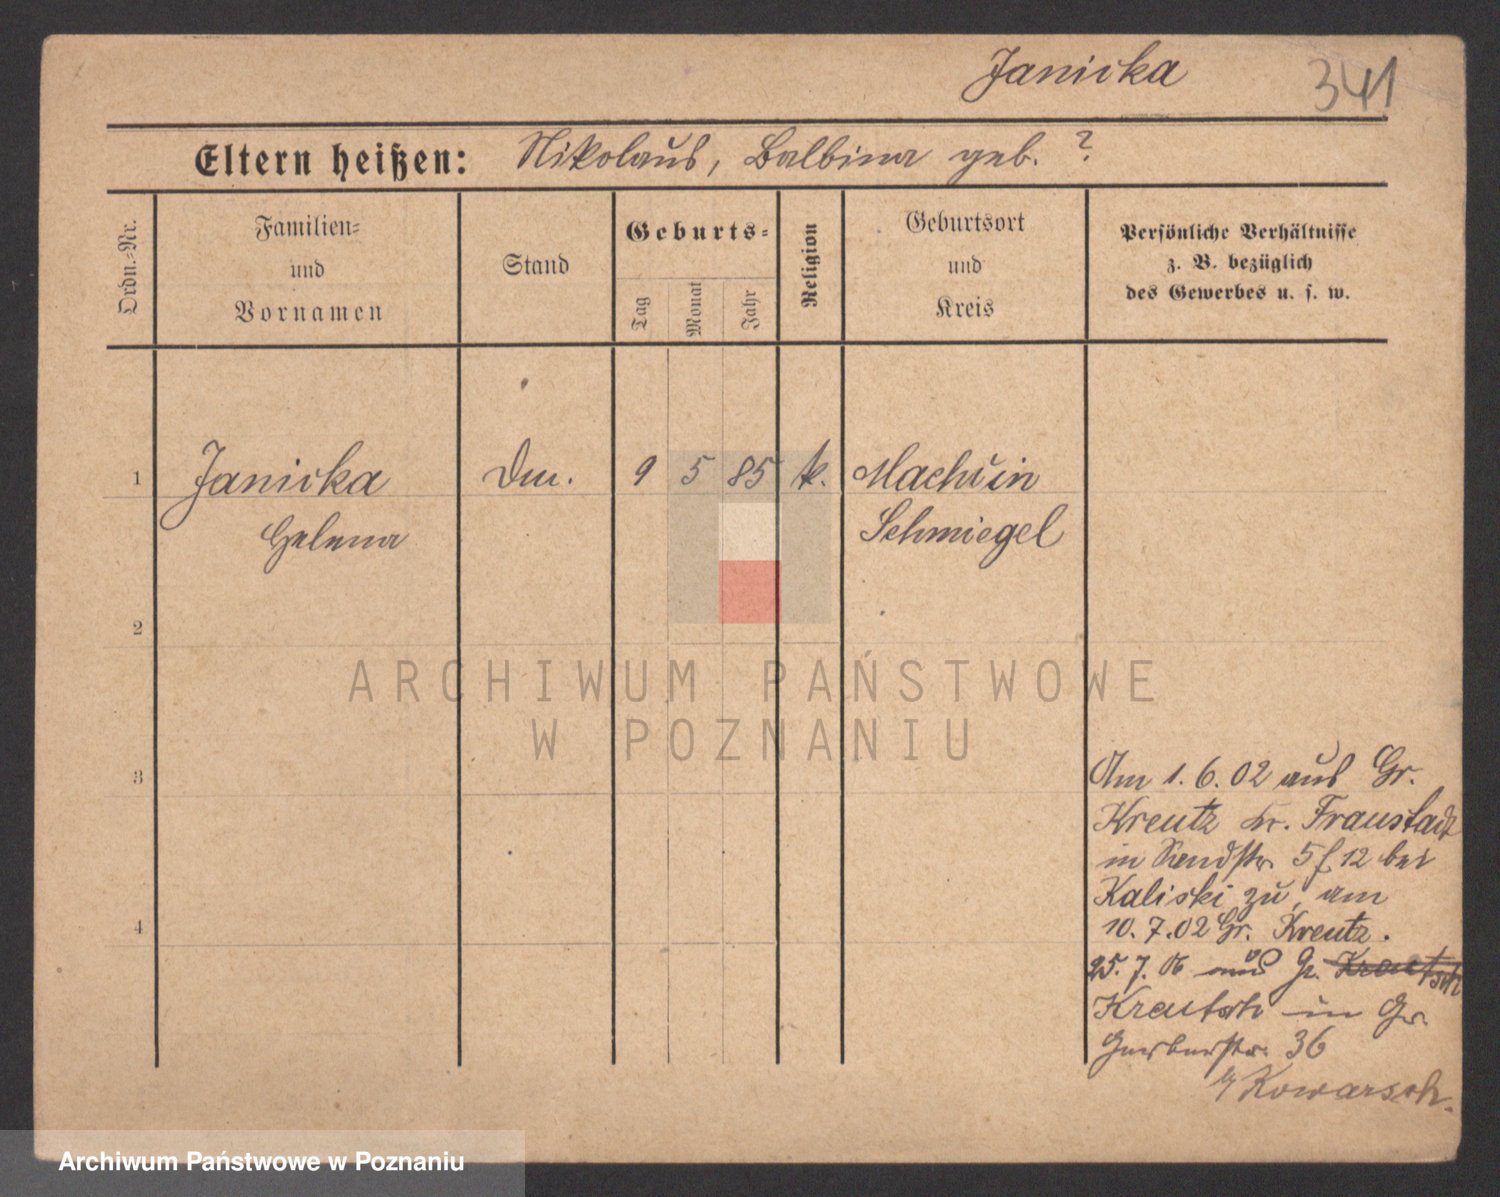 Janicka 341
Eltern heißen: Nikolaus, Balbina geb. ?
Ordn.-Nr.
Familien-
und
Vornamen
Stand
Geburts-
Tag
Monat
Jahr
Religion
Geburtsort
und
Kreis
Persönliche Verhältnisse
z. B. bezüglich
des Gewerbes u. s. w.
1 Janicka Dm. 9 5 85 k. Machcin
Helena Schmiegel
2
ARCHIWUM PAŃSTWOWE
W POZNANIU
3
4
Am 1. 6. 02 aus Gr.
Kreutz Kr. Fraustadt
in 5 12 bei
Kaliski zu, am
10. 7. 02 Gr. Kreutz.
25. 7. 06 aus Gr. Kreutsch
Kreutsch in Gr.
Gerberstr. 36
Kowarsch.
Archiwum Państwowe w Poznaniu